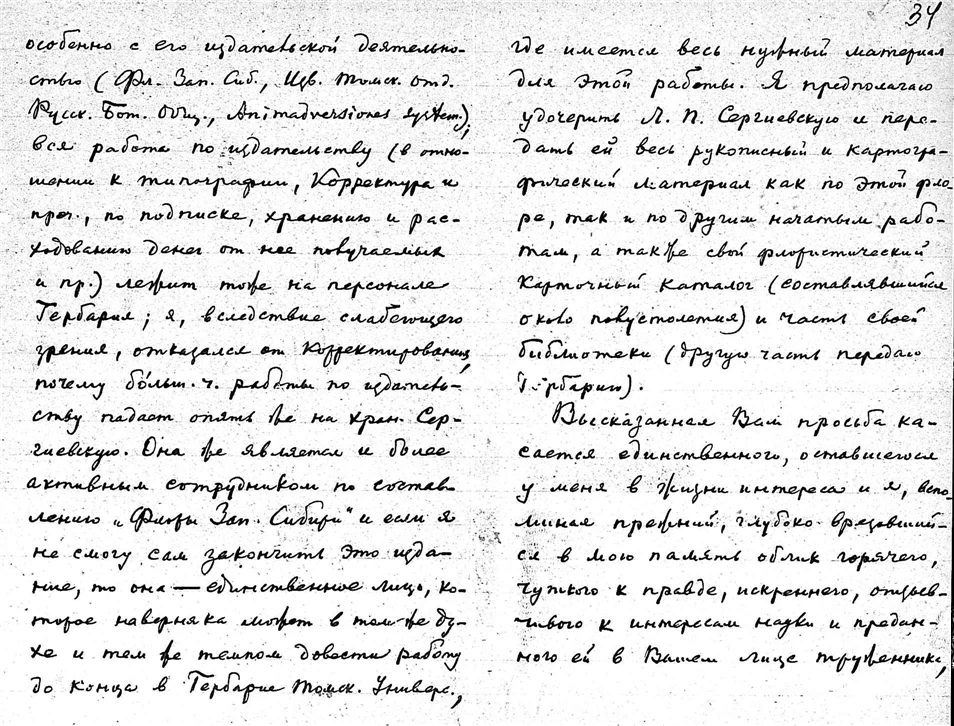 особенно с его издательской деятельно-
стью (Фл. Зап. Сиб., Изв. Томск. Отд.
Русск. Бот. Общ., Animadversiones system.),
вся работа по издательству (в отно-
шении к типографии, корректура и
проч., по подписке, хранению и рас-
ходованию денег от нее получаемых
и пр.) лежит тоже на персонале
Гербария; я, вследствие слабеющего
зрения, отказался от корректирования,
почему больш. ч. работы по издатель-
ству падает опять же на хран. Сер-
гиевскую. Она же является и более
активным сотрудником по состав-
лению „Флоры Зап. Сибири" и если я
не смогу сам закончить это изда-
ние, то она — единственное лицо, ко-
торое наверняка может в том же ду-
хе и тем же темпом довести работу
до конца в Гербарие Томск. Универс.,
34
где имеется весь нужный материал
для этой работы. Я предполагаю
удочерить Л. П. Сергиевскую и пере-
дать ей весь рукописный и картогра-
фический материал как по этой фло-
ре, так и по другим начатым рабо-
там, а также свой флористический
карточный каталог (составлявшийся
около полустолетия) и часть своей
библиотеки (другую часть передаю
Гербарию).
Высказанная Вам просьба ка-
сается единственного, оставшегося
у меня в жизни интереса и я, вспо-
миная прежний, глубоко врезавший-
ся в мою память облик горячего,
чуткого к правде, искреннего, отзыв-
чивого к интересам науки и предан-
ного ей в Вашем лице труженника,